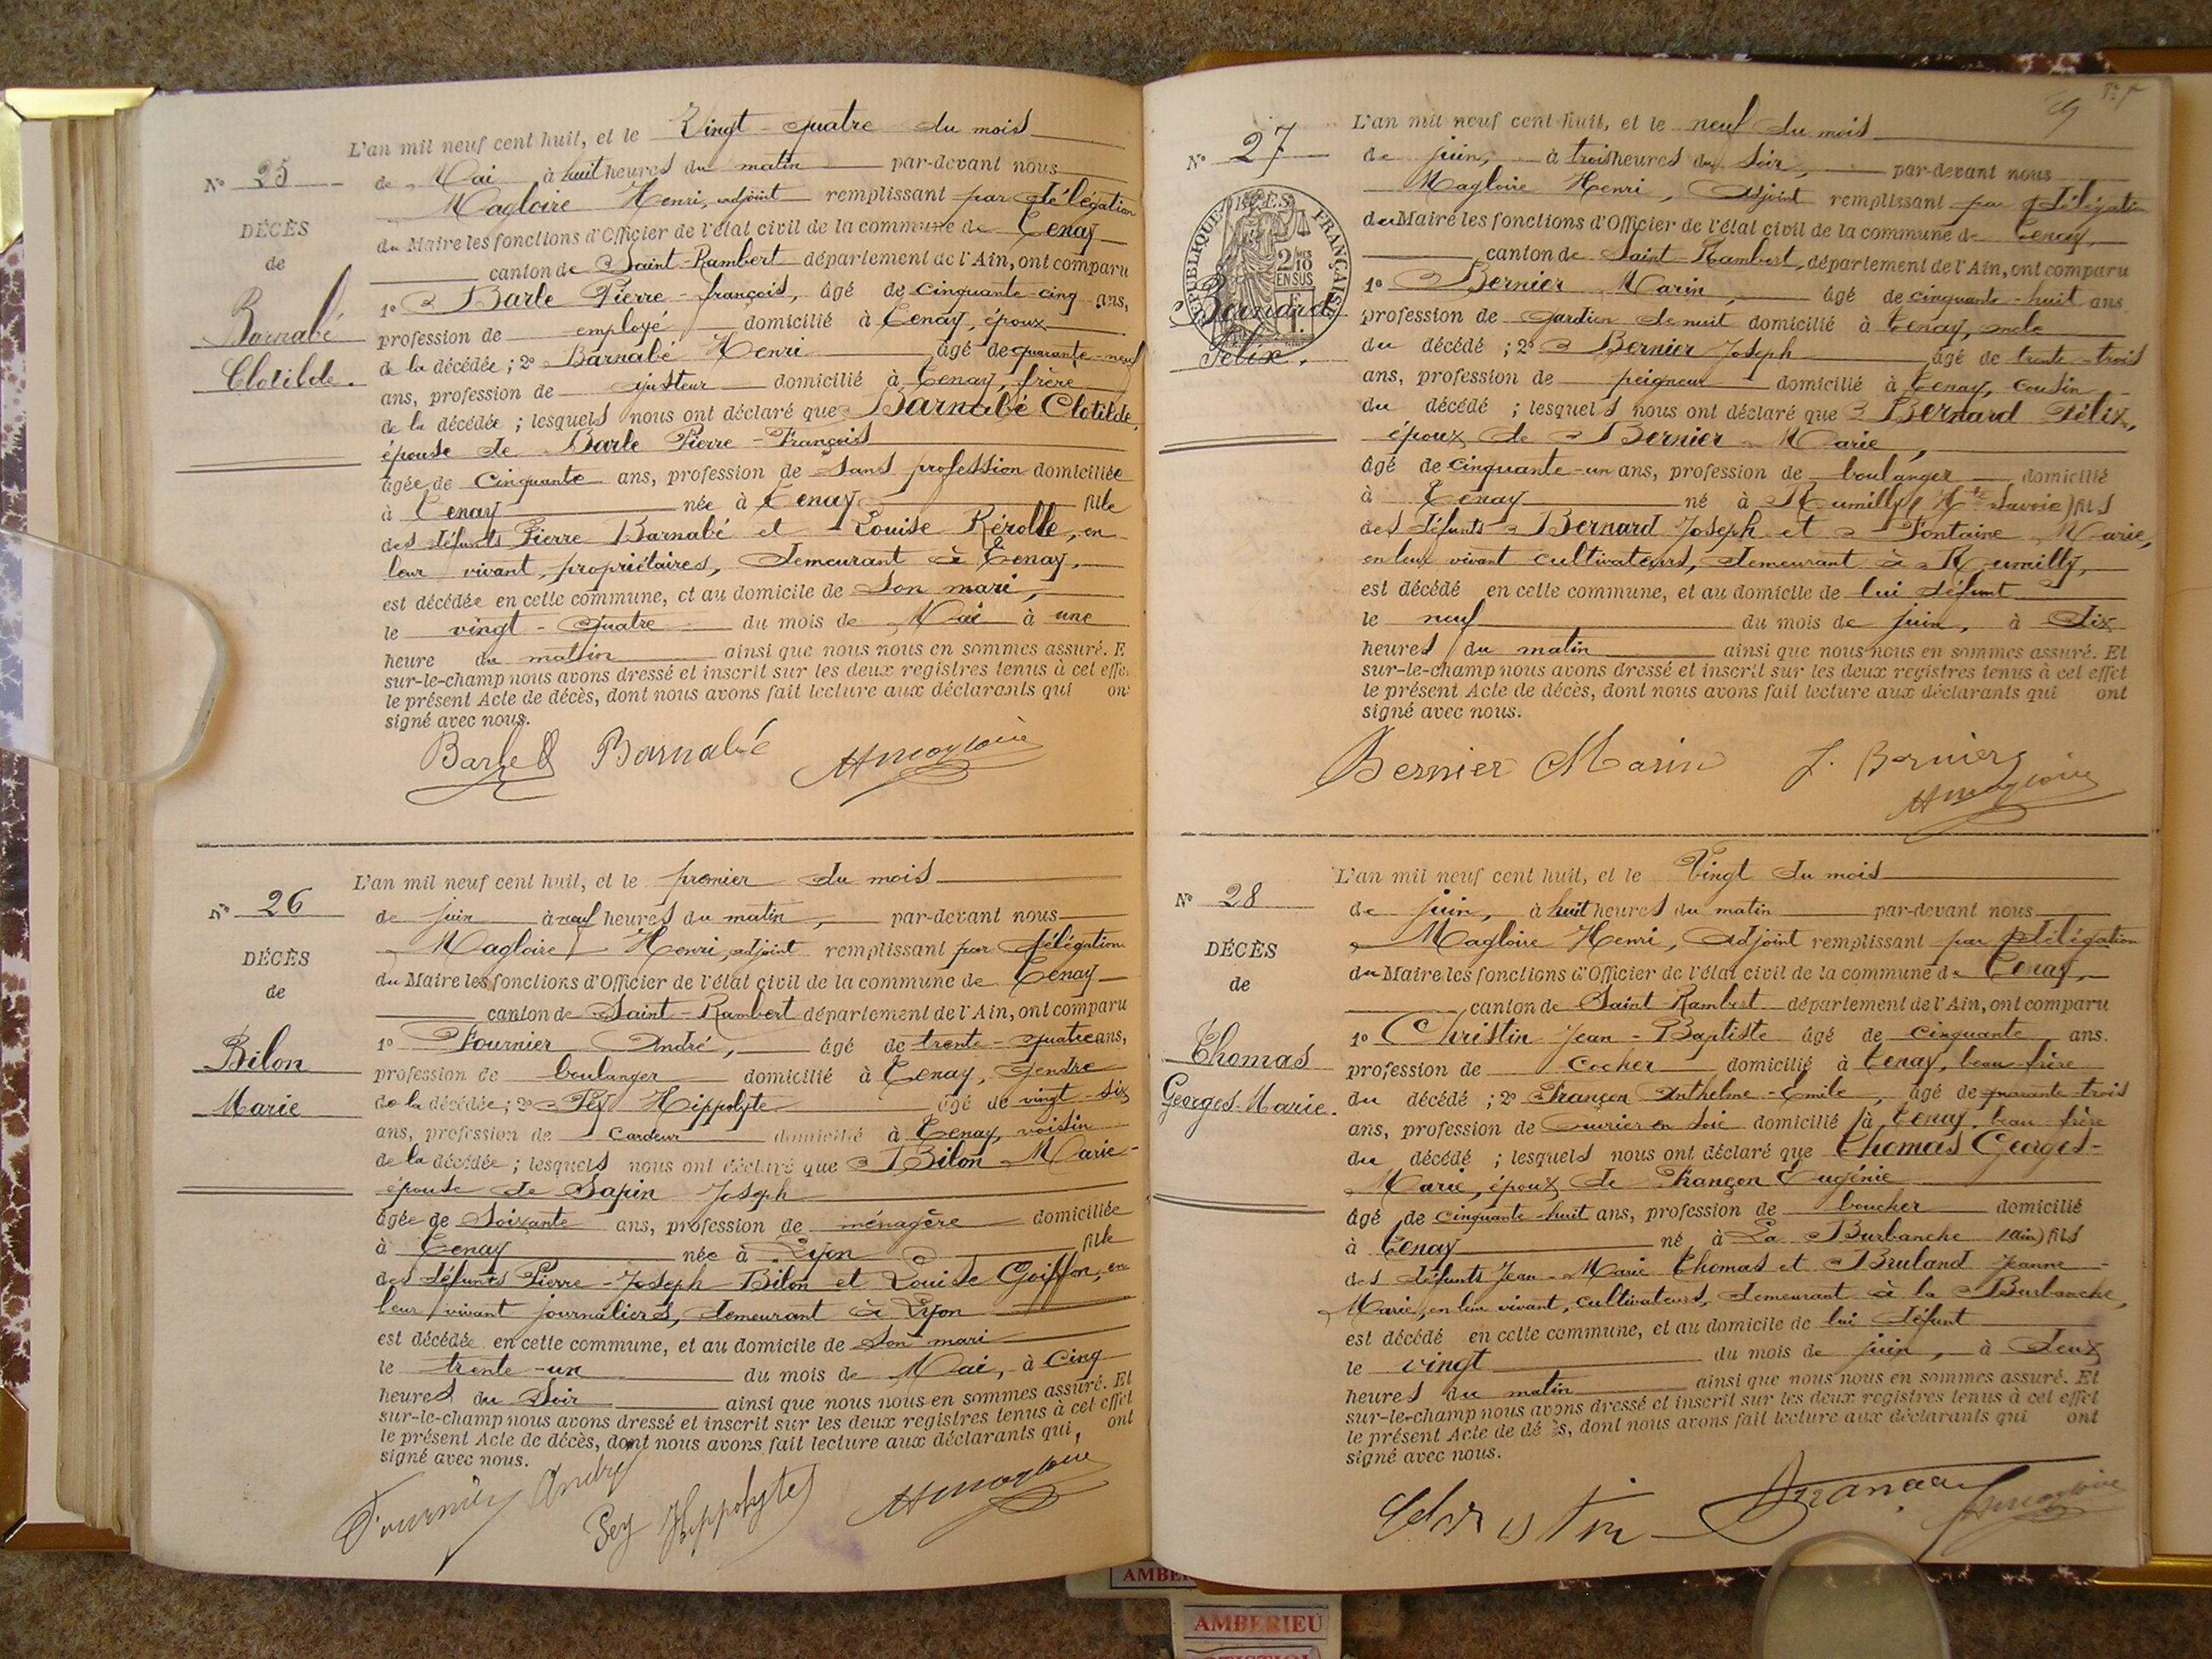 L'an mil neuf cent huit, et le Vingt-quatre du mois
N° 25 de Mai à huit heures du matin par-devant nous
Magloire Henri, adjoint remplissant par délégation
DÉCÈS
du Maire les fonctions d'Officier de l'état civil de la commune de Tenay
de
canton de Saint-Rambert département de l'Ain, ont comparu
Barnabé
Clotilde.
1° Barle Pierre-François, âgé de cinquante-cinq ans,
profession de employé domicilié à Tenay, époux
de la décédée ; 2° Barnabé Henri âgé de quarante-neuf
ans, profession de ajusteur domicilié à Tenay, frère
de la décédée ; lesquels nous ont déclaré que Barnabé Clotilde,
épouse de Barle Pierre-François
âgée de cinquante ans, profession de sans profession domiciliée
à Tenay née à Tenay fille
des défunts Pierre Barnabé et Louise Rérolle, en
leur vivant, propriétaires, demeurant à Tenay,
est décédée en cette commune, et au domicile de son mari,
le vingt-quatre du mois de Mai à une
heure du matin ainsi que nous nous en sommes assuré. E
sur-le-champ nous avons dressé et inscrit sur les deux registres tenus à cet effe
le présent Acte de décès, dont nous avons fait lecture aux déclarants qui on
signé avec nous.
Barle Barnabé Hmagloire
L'an mil neuf cent huit, et le premier du mois
N° 26 de juin à neuf heures du matin, par-devant nous
Magloire Henri, adjoint remplissant par délégation
DÉCÈS
du Maire les fonctions d'Officier de l'état civil de la commune de Tenay
de
canton de Saint-Rambert département de l'Ain, ont comparu
Bilon
Marie
1° Fournier André, âgé de trente-quatre ans,
profession de boulanger domicilié à Tenay, gendre
de la décédée ; 2° Pey Hippolyte âgé de vingt-six
ans, profession de cardeur domicilié à Tenay, voisin
de la décédée ; lesquels nous ont déclaré que Bilon Marie-
épouse de Sapin Joseph
âgée de soixante ans, profession de ménagère domiciliée
à Tenay née à Lyon fille
des défunts Pierre-Joseph Bilon et Louise Goiffon, en
leur vivant journaliers, demeurant à Lyon
est décédée en cette commune, et au domicile de son mari
le trente-un du mois de Mai, à cinq
heures du soir ainsi que nous nous en sommes assuré. Et
sur-le-champ nous avons dressé et inscrit sur les deux registres tenus à cet effet
le présent Acte de décès, dont nous avons fait lecture aux déclarants qui, ont
signé avec nous.
Fournier André Pey Hippolyte Hmagloire
29
L'an mil neuf cent huit, et le neuf du mois
N° 27 de juin, à trois heures du soir, par-devant nous
Magloire Henri, Adjoint remplissant par délégation
du Maire les fonctions d'Officier de l'état civil de la commune de Tenay,
canton de Saint-Rambert, département de l'Ain, ont comparu
RÉPUBLIQUE FRANÇAISE
2/10 EN SUS
Bernard
Félix.
1° Bernier Marin, âgé de cinquante-huit ans
profession de gardien de nuit domicilié à Tenay, oncle
du décédé ; 2° Bernier Joseph âgé de trente-trois
ans, profession de peigneur domicilié à Tenay, cousin
du décédé ; lesquels nous ont déclaré que Bernard Félix,
époux de Bernier Marie,
âgé de cinquante-un ans, profession de boulanger domicilié
à Tenay né à Rumilly (Hte Savoie) fils
des défunts Bernard Joseph et Fontaine Marie,
en leur vivant cultivateurs, demeurant à Rumilly,
est décédé en cette commune, et au domicile de lui défunt
le neuf du mois de juin, à dix
heures du matin ainsi que nous nous en sommes assuré. Et
sur-le-champ nous avons dressé et inscrit sur les deux registres tenus à cet effet
le présent Acte de décès, dont nous avons fait lecture aux déclarants qui ont
signé avec nous.
Bernier Marin J. Bernier
Hmagloire
L'an mil neuf cent huit, et le Vingt du mois
N° 28 de juin, à huit heures du matin par-devant nous
Magloire Henri, Adjoint remplissant par délégation
DÉCÈS
du Maire les fonctions d'Officier de l'état civil de la commune de Tenay,
de
canton de Saint-Rambert département de l'Ain, ont comparu
Thomas
Georges-Marie.
1° Christin Jean-Baptiste âgé de cinquante ans.
profession de cocher domicilié à Tenay, beau-frère
du décédé ; 2° Françon Anthelme-Emile, âgé de quarante-trois
ans, profession de ouvrier en soie domicilié à Tenay, beau-frère
du décédé ; lesquels nous ont déclaré que Thomas Georges-
Marie, époux de Françon Eugénie
âgé de cinquante-huit ans, profession de boucher domicilié
à Tenay né à La Burbanche (Ain) fils
des défunts Jean-Marie Thomas et Bruland Jeanne-
Marie, en leur vivant, cultivateurs, demeurant à la Burbanche,
est décédé en cette commune, et au domicile de lui défunt
le vingt du mois de juin, à deux
heures du matin ainsi que nous nous en sommes assuré. Et
sur-le-champ nous avons dressé et inscrit sur les deux registres tenus à cet effet
le présent Acte de dé ès, dont nous avons fait lecture aux déclarants qui ont
signé avec nous.
Christin Françon Hmagloire
AMBERIEU